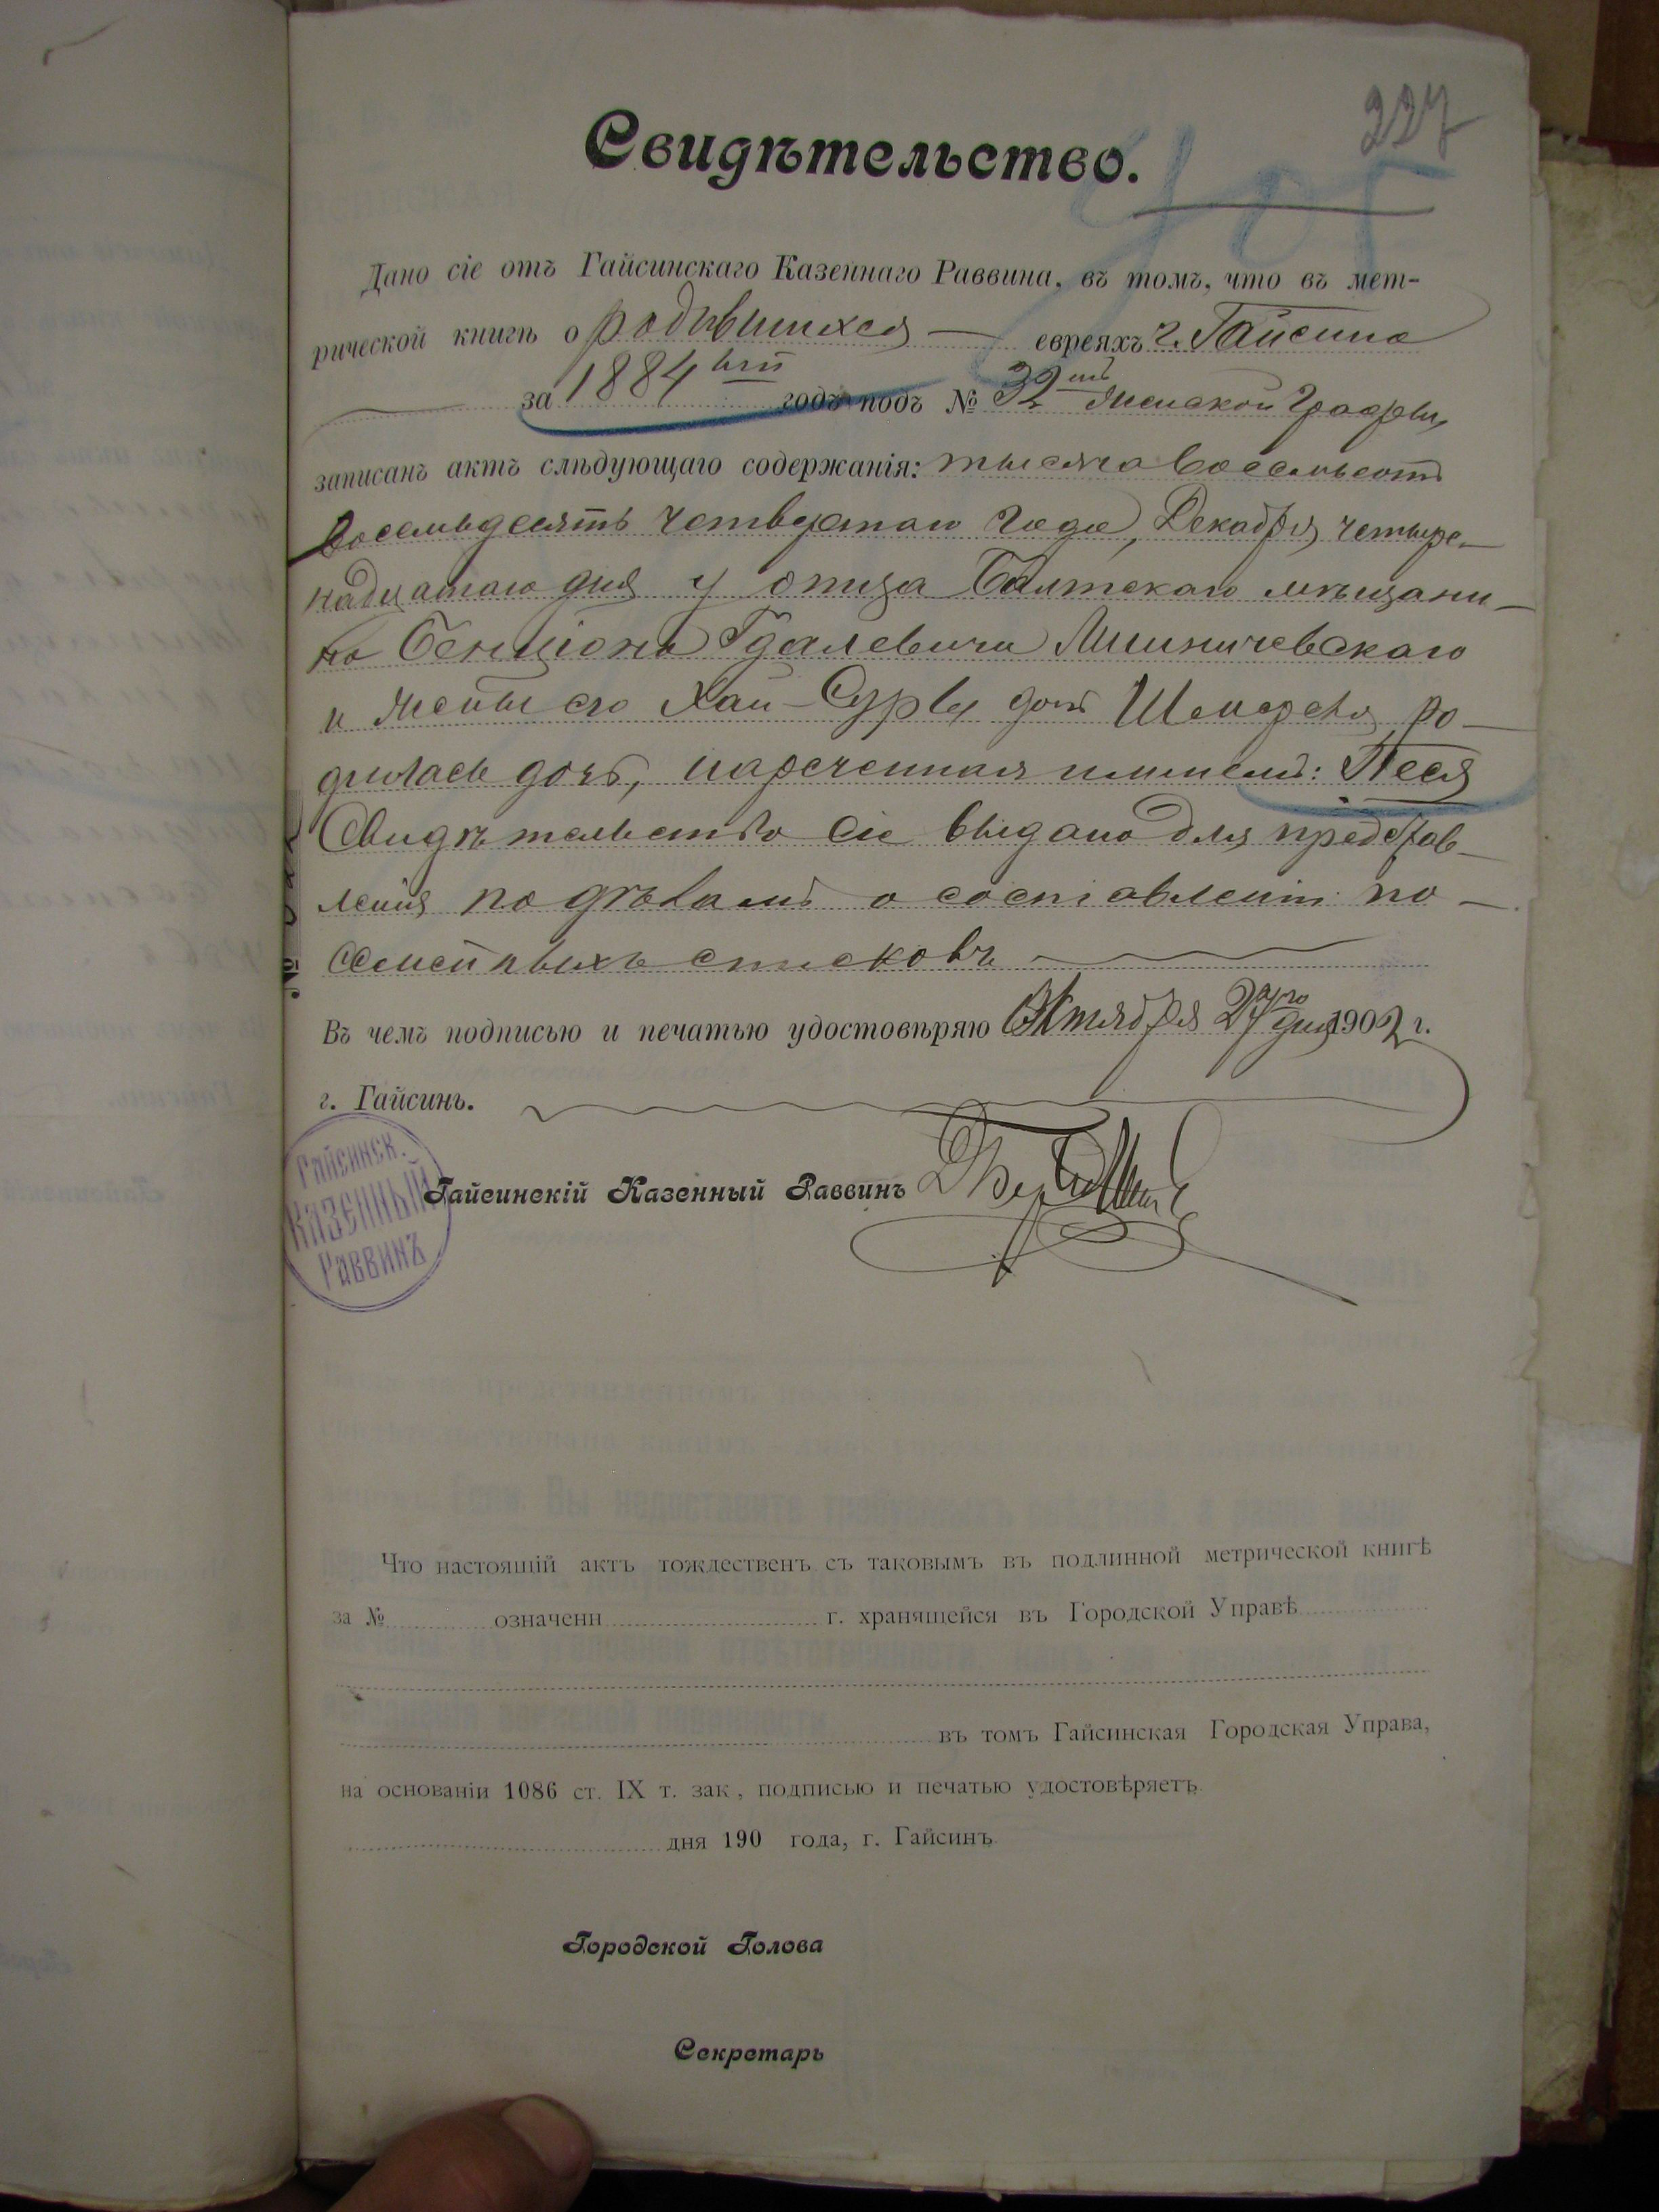 227
Свидѣтельство.
Дано сіе отъ Гайсинскаго Казеннаго Раввина, въ томъ, что въ мет-
рической книгѣ о родившихся евреяхъ г. Гайсина
за 1884 год подъ № 32 женской графы,
записанъ актъ слѣдующаго содержанія: тысяча восемьсотъ
восемьдесятъ четвертаго года, Декабря четыре-
надцатаго дня у отца Балтскаго мѣщани-
на Бенціона Гдалевича Мишничевскаго
и жены его Хаи-Суры дочь ро-
дилась дочь, нареченная именемъ: Песя
Свидѣтельство сіе выдано для представ-
ленія по дѣламъ о составленіи по-
семейныхъ списковъ
Въ чемъ подписью и печатью удостовѣряю Октября дня 1902 г.
г. Гайсинъ.
Гайсинск.
Казенный
Раввинъ
Гайсинскій Казенный Раввинъ
Что настоящій актъ тождественъ съ таковымъ въ подлинной метрической книгѣ
за № означенн г. хранящейся въ Городской Управѣ
въ томъ Гайсинская Городская Управа,
на основаніи 1086 ст. IX т. зак, подписью и печатью удостовѣряетъ
дня 190 года, г. Гайсинъ
Городской Голова
Секретарь